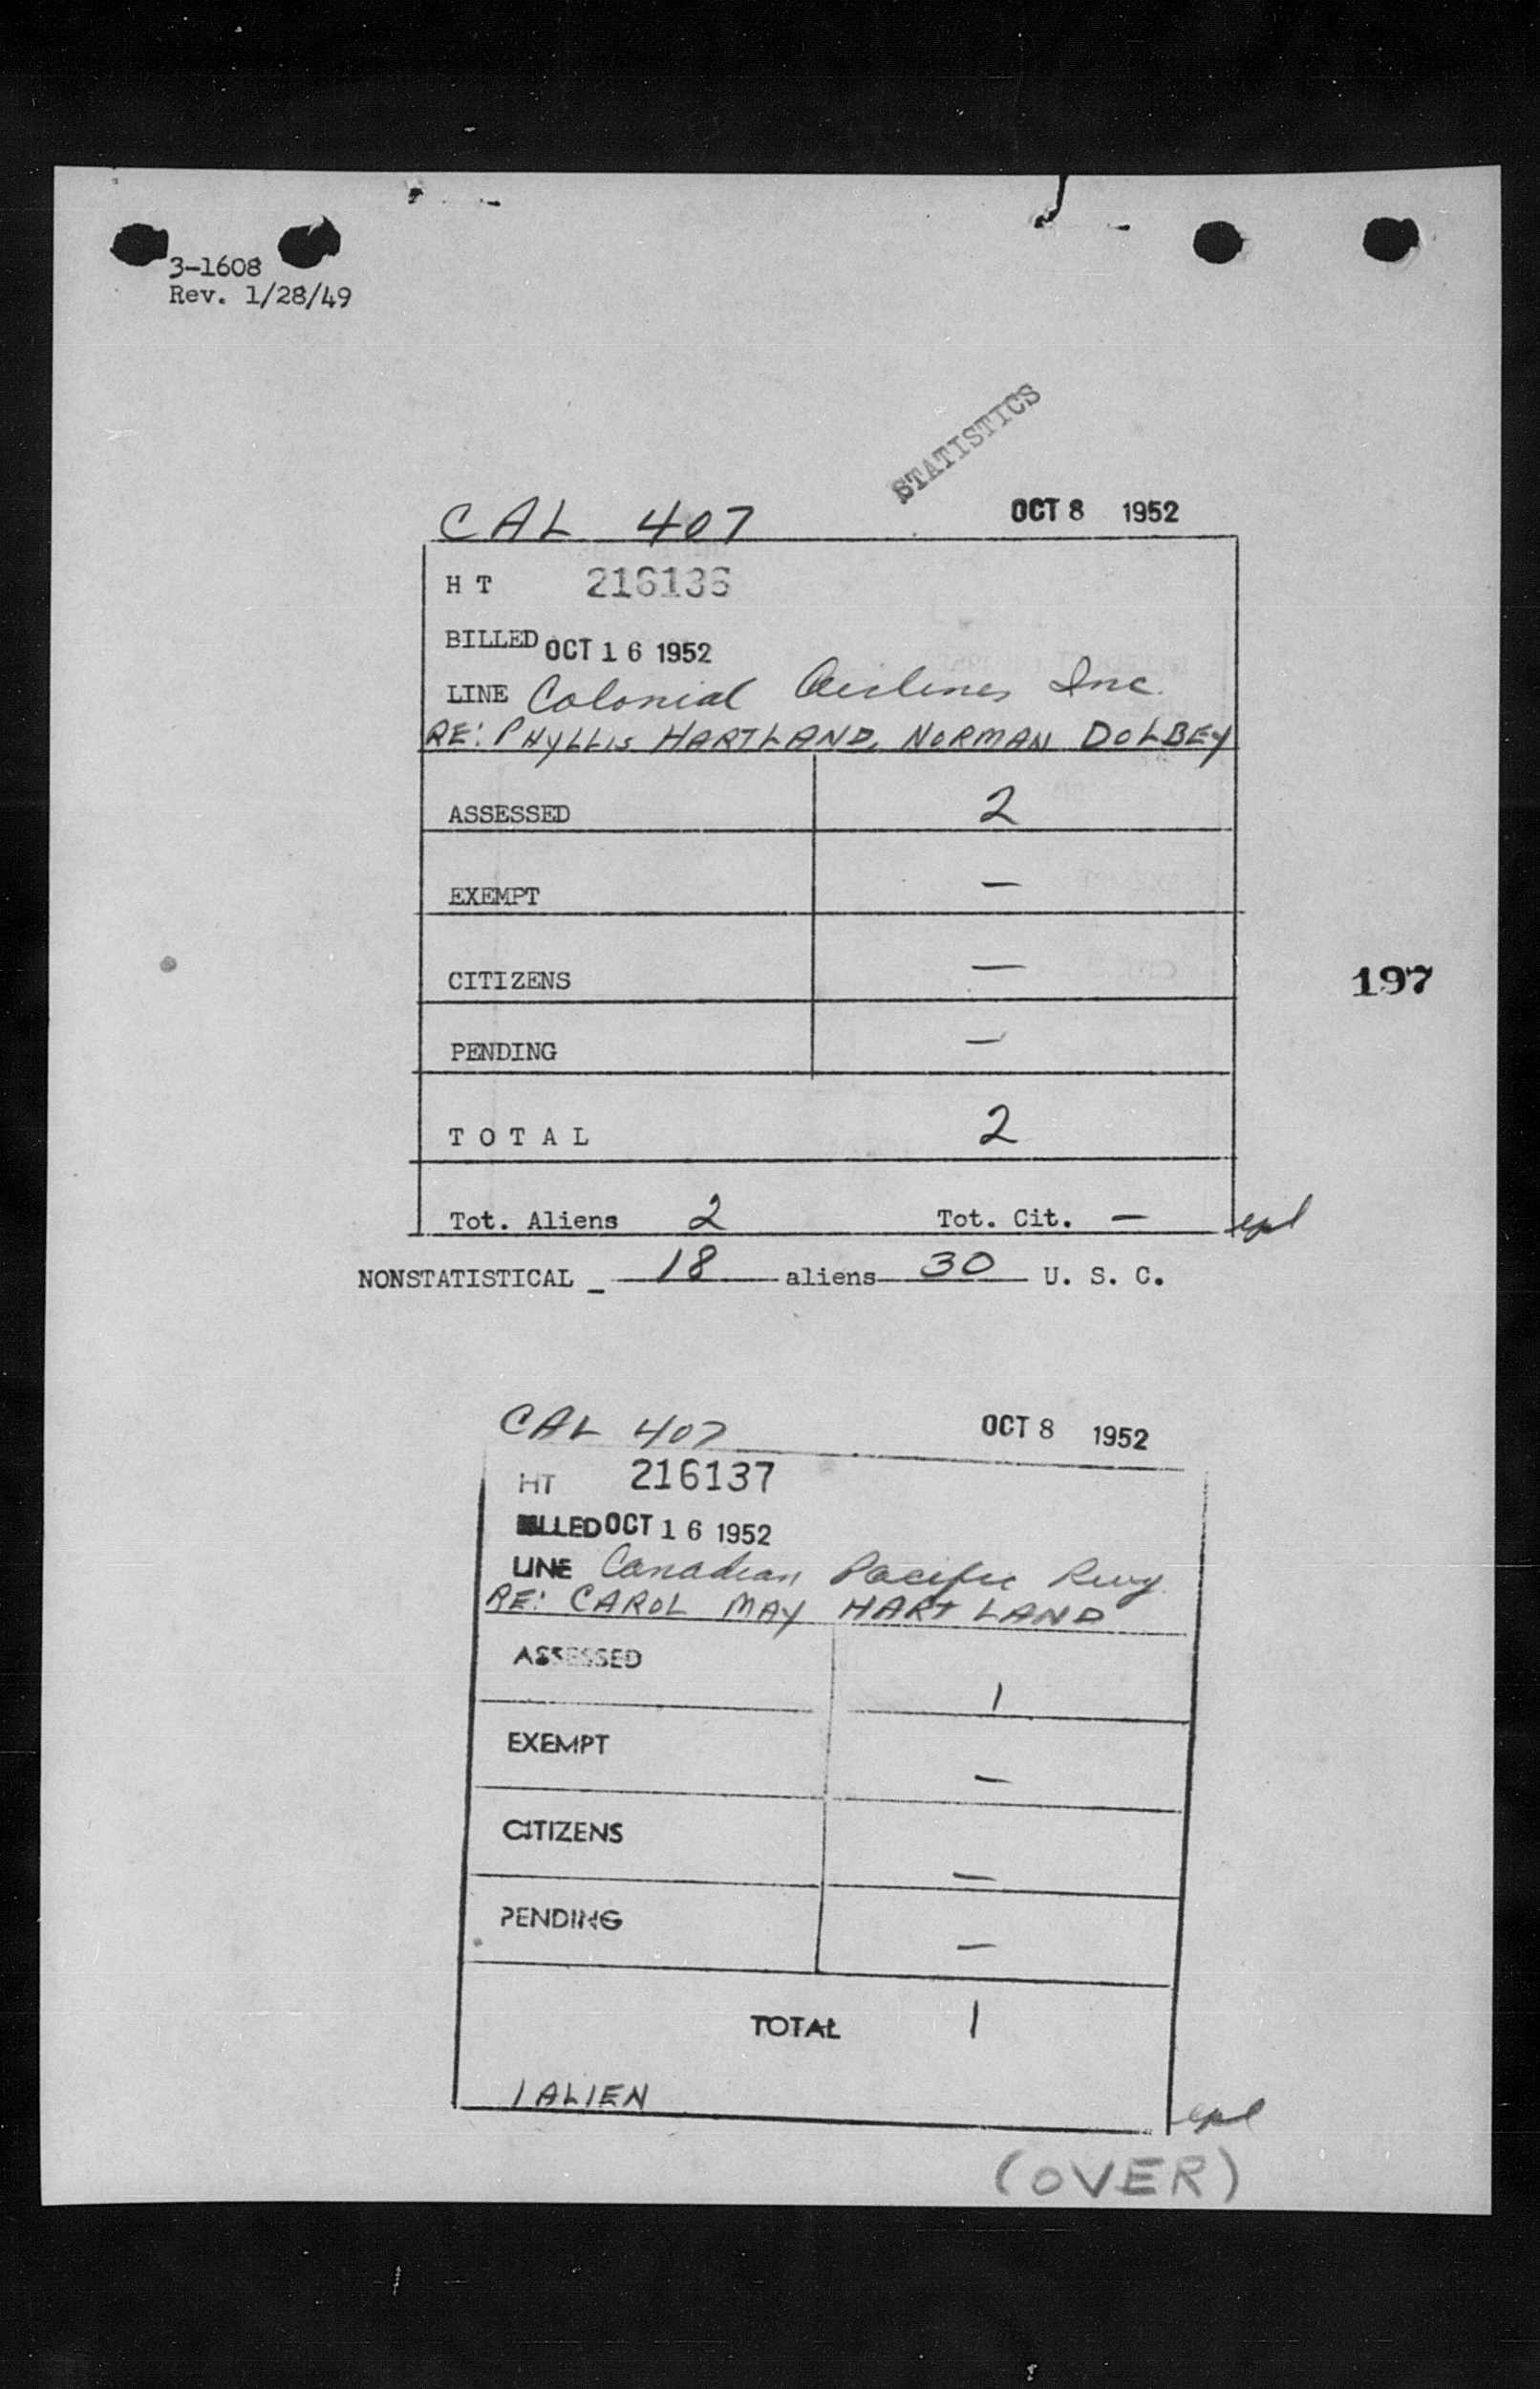 3-1608
Rev. 1/28/49
STATISTICS
CAL 407 OCT 8 1952
H T 216136
BILLED OCT 16 1952
LINE Colonial Airlines Inc.
RE: PHYLLIS HARTLAND, NORMAN DOLBEY
ASSESSED 2
EXEMPT —
CITIZENS —
197
PENDING —
T O T A L 2
Tot. Aliens 2 Tot. Cit. —
NONSTATISTICAL - 18 aliens 30 U. S. C.
CAL 407 OCT 8 1952
HT 216137
BILLED OCT 16 1952
LINE Canadian Pacific Rwy.
RE: CAROL MAY HARTLAND
ASSESSED 1
EXEMPT —
CITIZENS —
PENDING —
TOTAL 1
1 ALIEN
(OVER)